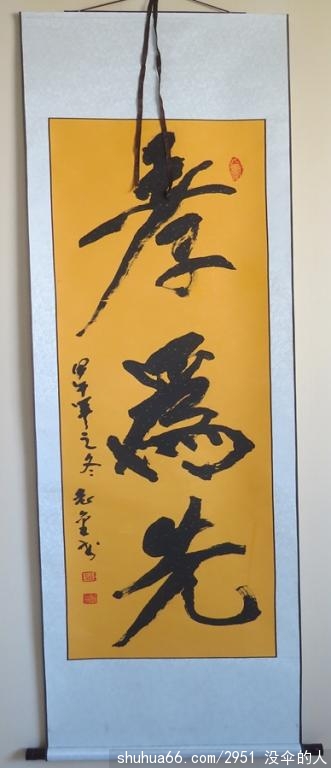 孝
為
先
甲午年之冬
shuhua66.com/2951 没伞的人